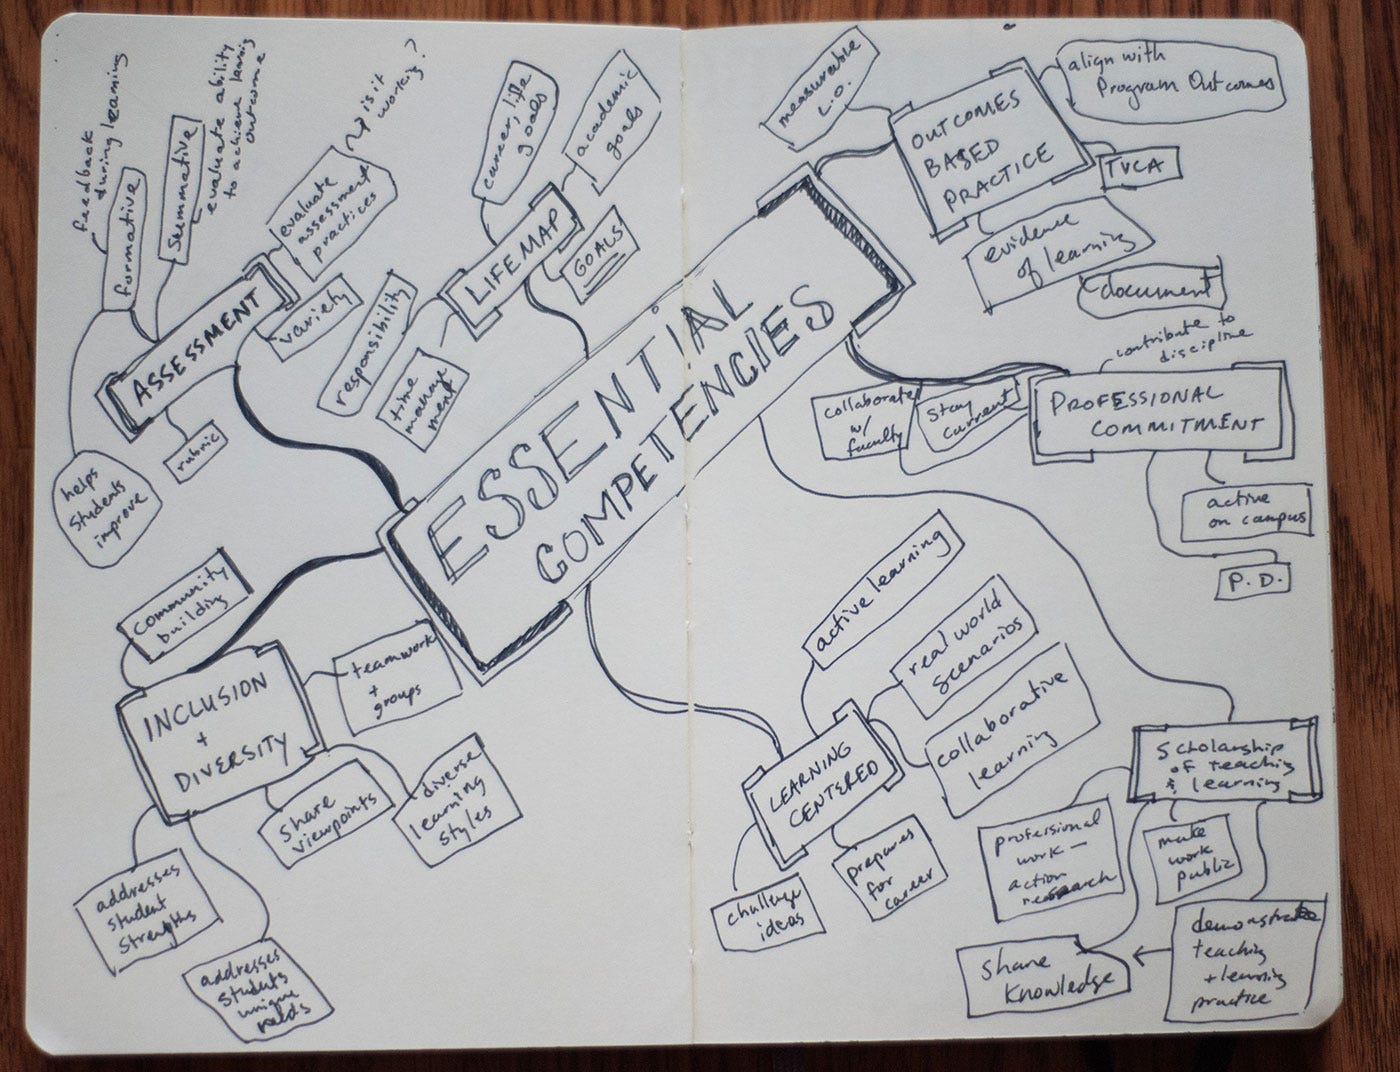 ESSENTIAL
COMPETENCIES
ASSESSMENT
feedback
during learning
formative
Summative
evaluate ability
to achieve learning
outcome
evaluate
assessment
practices
is it
working?
variety
rubric
helps
students
improve
LIFEMAP
career, life
goals
academic
goals
GOALS
responsibility
time
manage
ment
OUTCOMES
BASED
PRACTICE
measureable
L.O.
align with
Program Outcomes
TVCA
evidence
of learning
document
PROFESSIONAL
COMMITMENT
contribute to
discipline
Stay
current
collaborate
w/
faculty
active
on campus
P.D.
INCLUSION
+
DIVERSITY
community
building
teamwork
+
groups
share
viewpoints
diverse
learning
styles
addresses
student
strengths
addresses
students
unique
needs
LEARNING
CENTERED
active learning
real world
scenarios
collaborative
learning
prepares
for
career
challenge
ideas
Scholarship
of teaching
& learning
professional
work –
action
research
make
work
public
demonstrate
teaching
+ learning
practice
Share
Knowledge